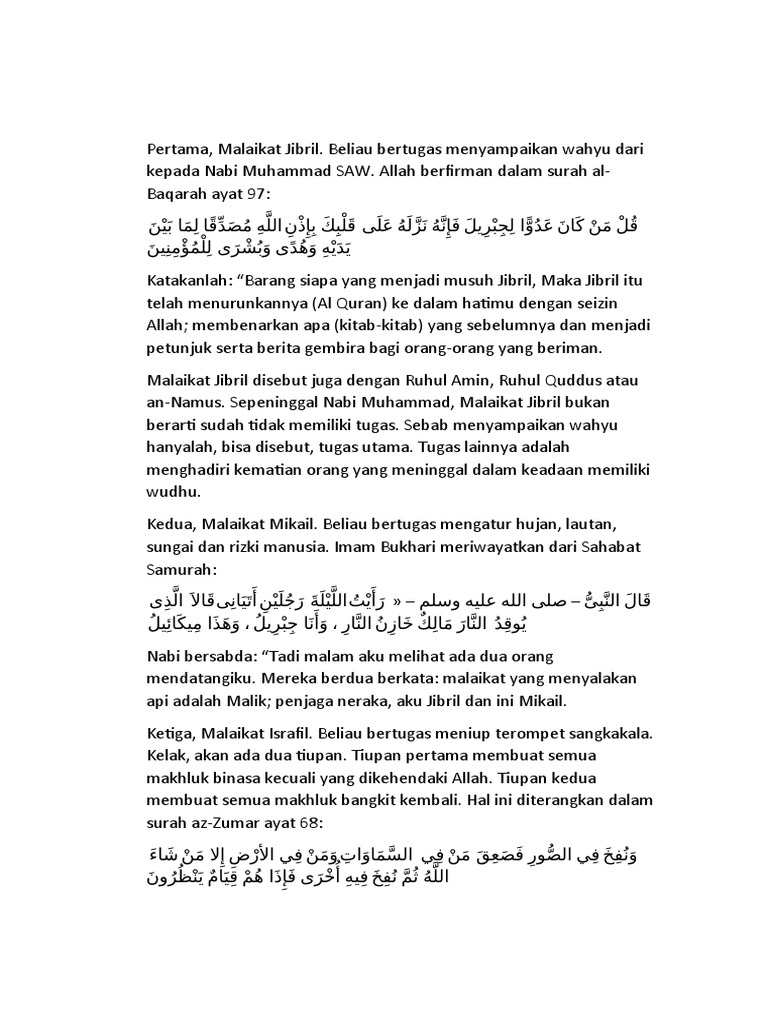 Pertama, Malaikat Jibril. Beliau bertugas menyampaikan wahyu dari
kepada Nabi Muhammad SAW. Allah berfirman dalam surah al-
Baqarah ayat 97:
قُلْ مَنْ كَانَ عَدُوًّا لِجِبْرِيلَ فَإِنَّهُ نَزَّلَهُ عَلَى قَلْبِكَ بِإِذْنِ اللَّهِ مُصَدِّقًا لِمَا بَيْنَ
يَدَيْهِ وَهُدًى وَبُشْرَى لِلْمُؤْمِنِينَ
Katakanlah: “Barang siapa yang menjadi musuh Jibril, Maka Jibril itu
telah menurunkannya (Al Quran) ke dalam hatimu dengan seizin
Allah; membenarkan apa (kitab-kitab) yang sebelumnya dan menjadi
petunjuk serta berita gembira bagi orang-orang yang beriman.
Malaikat Jibril disebut juga dengan Ruhul Amin, Ruhul Quddus atau
an-Namus. Sepeninggal Nabi Muhammad, Malaikat Jibril bukan
berarti sudah tidak memiliki tugas. Sebab menyampaikan wahyu
hanyalah, bisa disebut, tugas utama. Tugas lainnya adalah
menghadiri kematian orang yang meninggal dalam keadaan memiliki
wudhu.
Kedua, Malaikat Mikail. Beliau bertugas mengatur hujan, lautan,
sungai dan rizki manusia. Imam Bukhari meriwayatkan dari Sahabat
Samurah:
قَالَ النَّبِىُّ – صلى الله عليه وسلم – « رَأَيْتُ اللَّيْلَةَ رَجُلَيْنِ أَتَيَانِى قَالاَ الَّذِى
يُوقِدُ النَّارَ مَالِكٌ خَازِنُ النَّارِ ، وَأَنَا جِبْرِيلُ ، وَهَذَا مِيكَائِيلُ
Nabi bersabda: “Tadi malam aku melihat ada dua orang
mendatangiku. Mereka berdua berkata: malaikat yang menyalakan
api adalah Malik; penjaga neraka, aku Jibril dan ini Mikail.
Ketiga, Malaikat Israfil. Beliau bertugas meniup terompet sangkakala.
Kelak, akan ada dua tiupan. Tiupan pertama membuat semua
makhluk binasa kecuali yang dikehendaki Allah. Tiupan kedua
membuat semua makhluk bangkit kembali. Hal ini diterangkan dalam
surah az-Zumar ayat 68:
وَنُفِخَ فِي الصُّورِ فَصَعِقَ مَنْ فِي السَّمَاوَاتِ وَمَنْ فِي الأرْضِ إِلا مَنْ شَاءَ
اللَّهُ ثُمَّ نُفِخَ فِيهِ أُخْرَى فَإِذَا هُمْ قِيَامٌ يَنْظُرُونَ